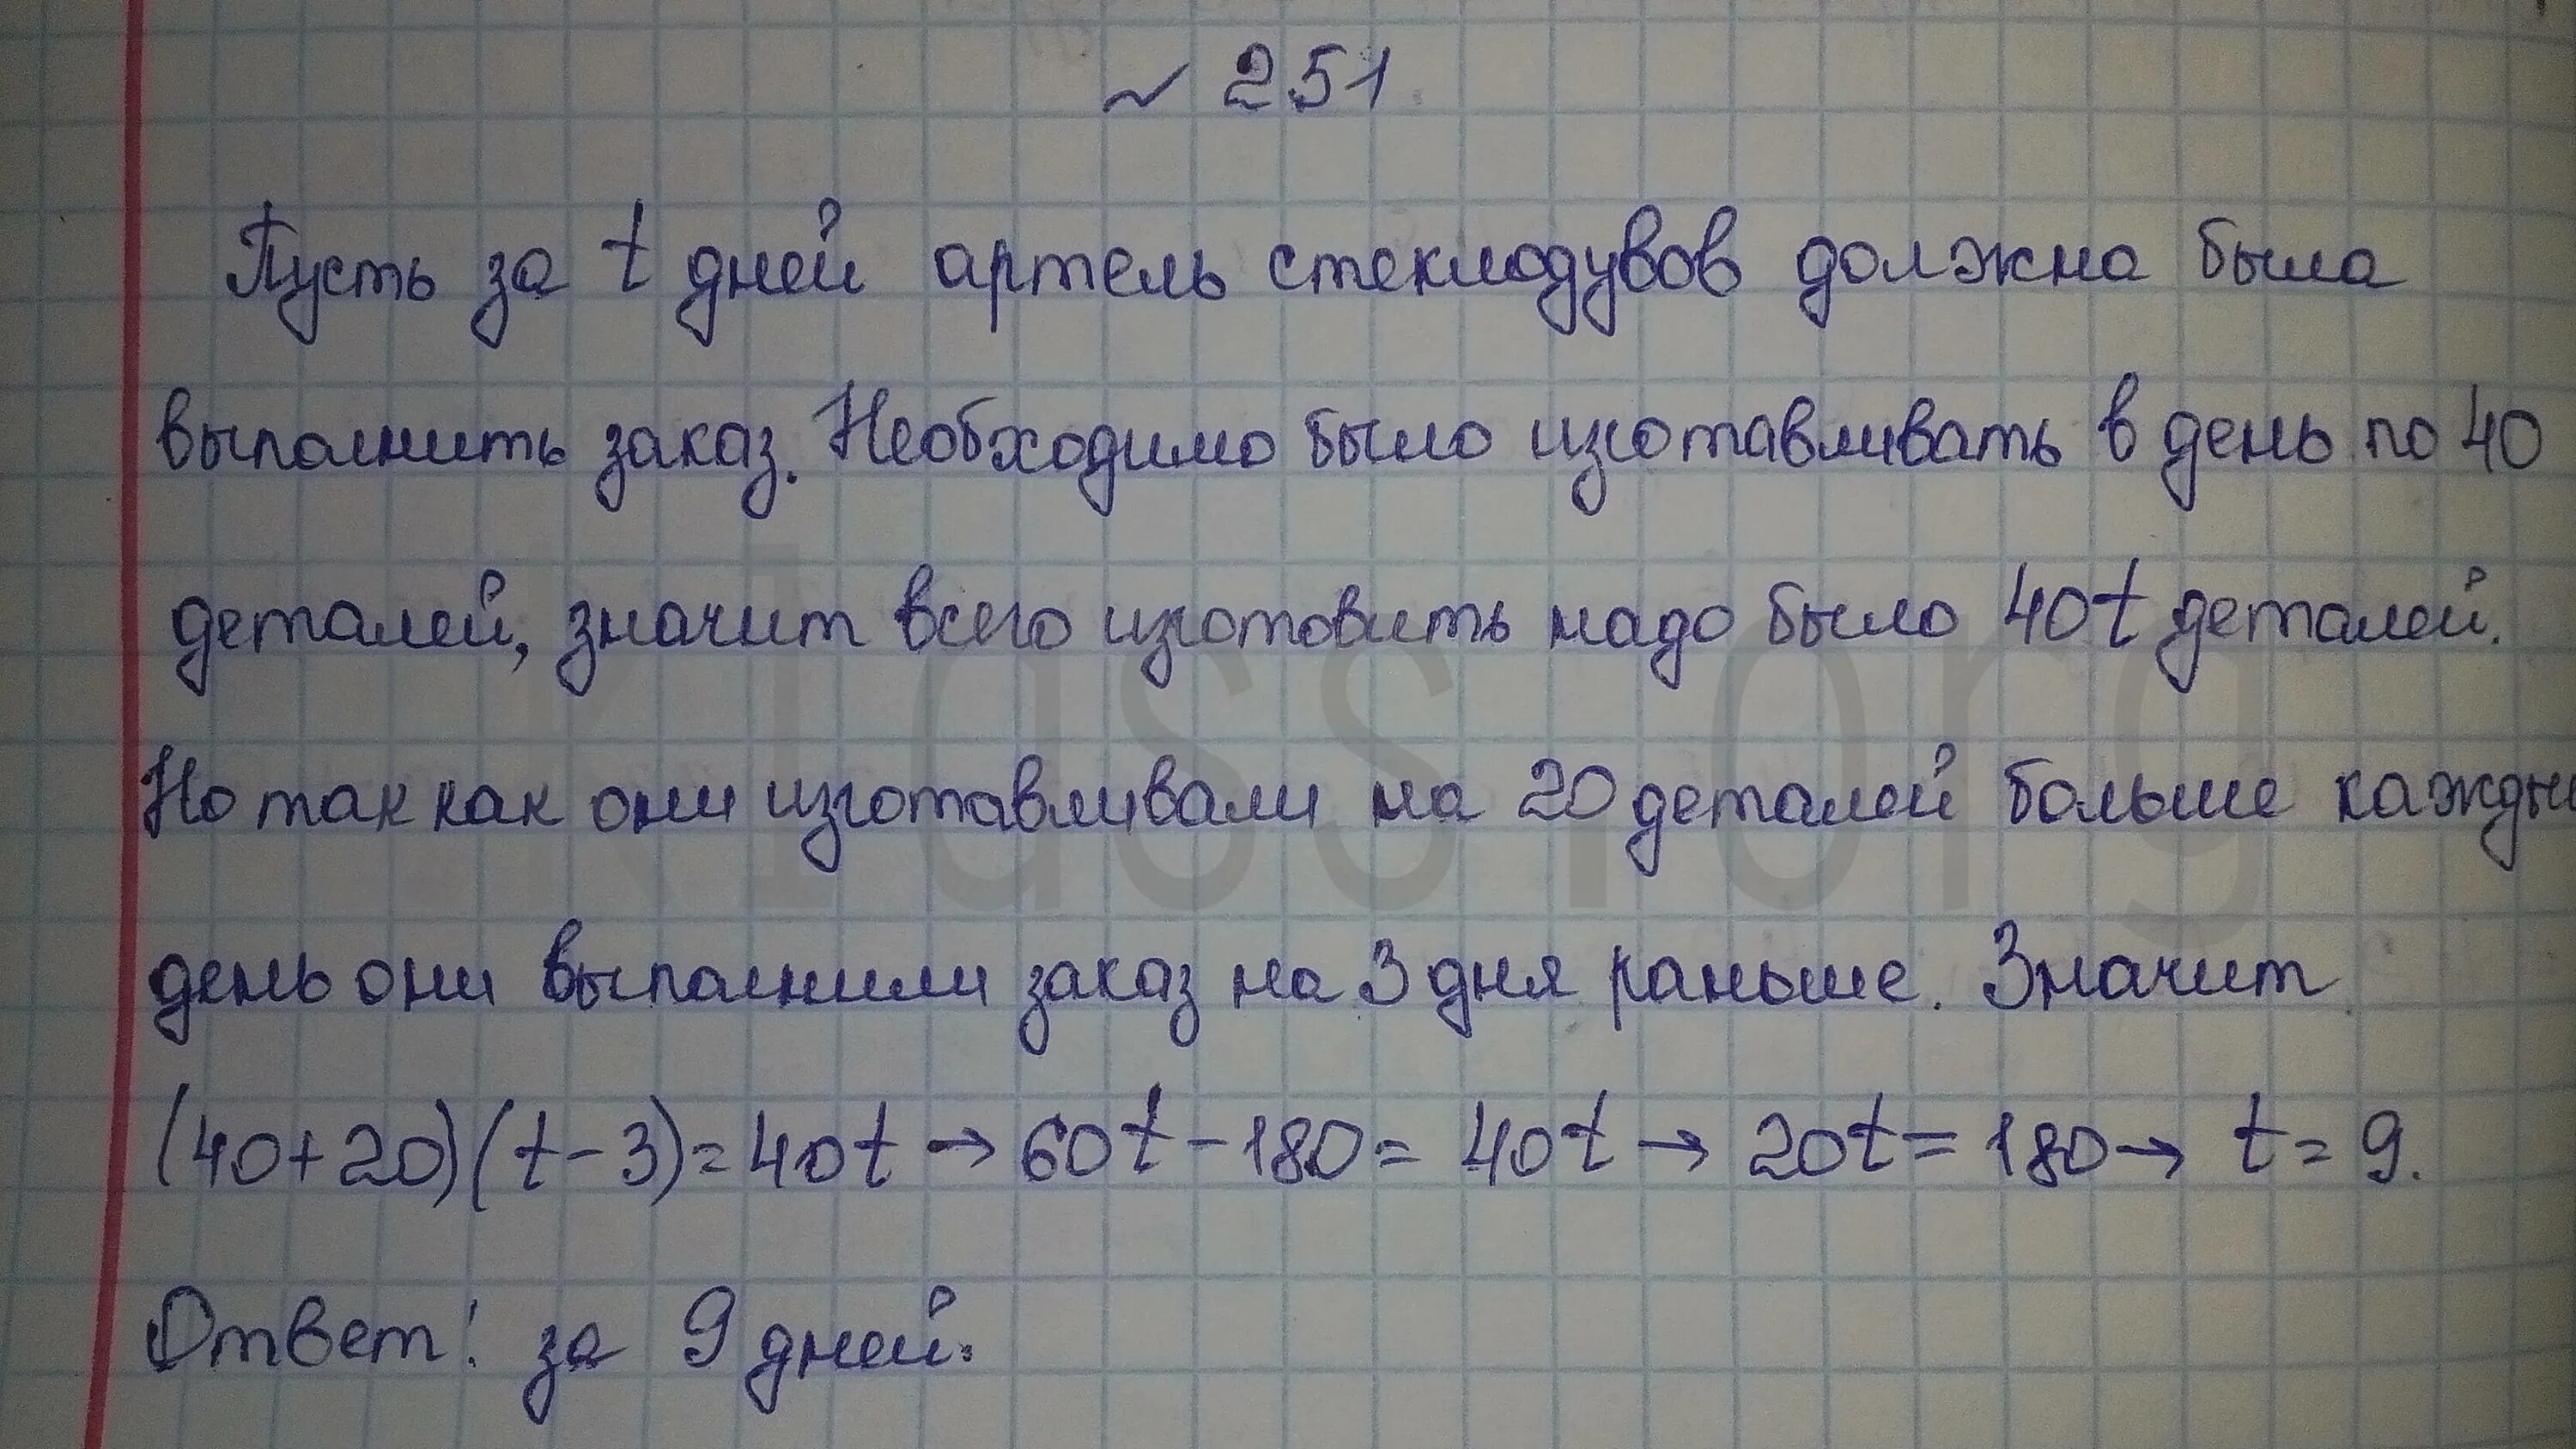 ~ 251.
Пусть за t дней артель стеклодувов должна была
выполнить заказ. Необходимо было изготавливать в день по 40
деталей, значит всего изготовить надо было 40t деталей.
Но так как они изготавливали на 20 деталей больше кажды
день они выполнили заказ на 3 дня раньше. Значит
(40+20)(t-3)=40t → 60t-180=40t → 20t=180 → t=9.
Ответ: за 9 дней.
klass.org